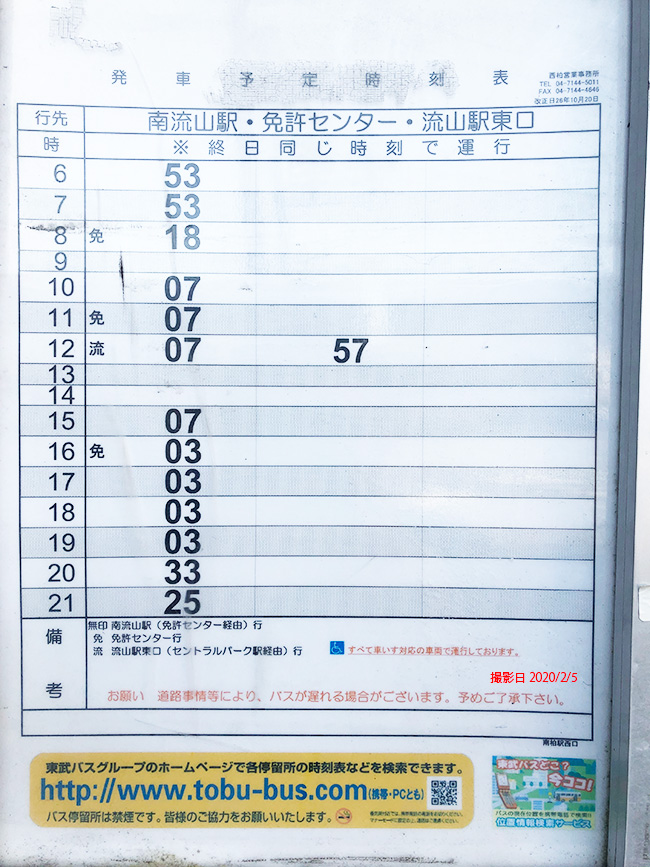 発車予定時刻表
西柏営業事務所
TEL 04-7144-5011
FAX 04-7144-4646
改正日26年10月20日
行先 南流山駅・免許センター・流山駅東口
時 ※終日同じ時刻で運行
6 53
7 53
8 免 18
9
10 07
11 免 07
12 流 07 57
13
14
15 07
16 免 03
17 03
18 03
19 03
20 33
21 25
備考
無印 南流山駅（免許センター経由）行
免 免許センター行
流 流山駅東口（セントラルパーク駅経由）行
すべて車いす対応の車両で運行しております。
撮影日 2020/2/5
お願い 道路事情等により、バスが遅れる場合がございます。予めご了承下さい。
南柏駅西口
東武バスグループのホームページで各停留所の時刻表などを検索できます。
http://www.tobu-bus.com(携帯・PCとも)
バス停留所は禁煙です。皆様のご協力をお願いいたします。
東武バスどこ?
今ココ!
バスの現在位置を携帯電話で検索!!
位置情報検索サービス